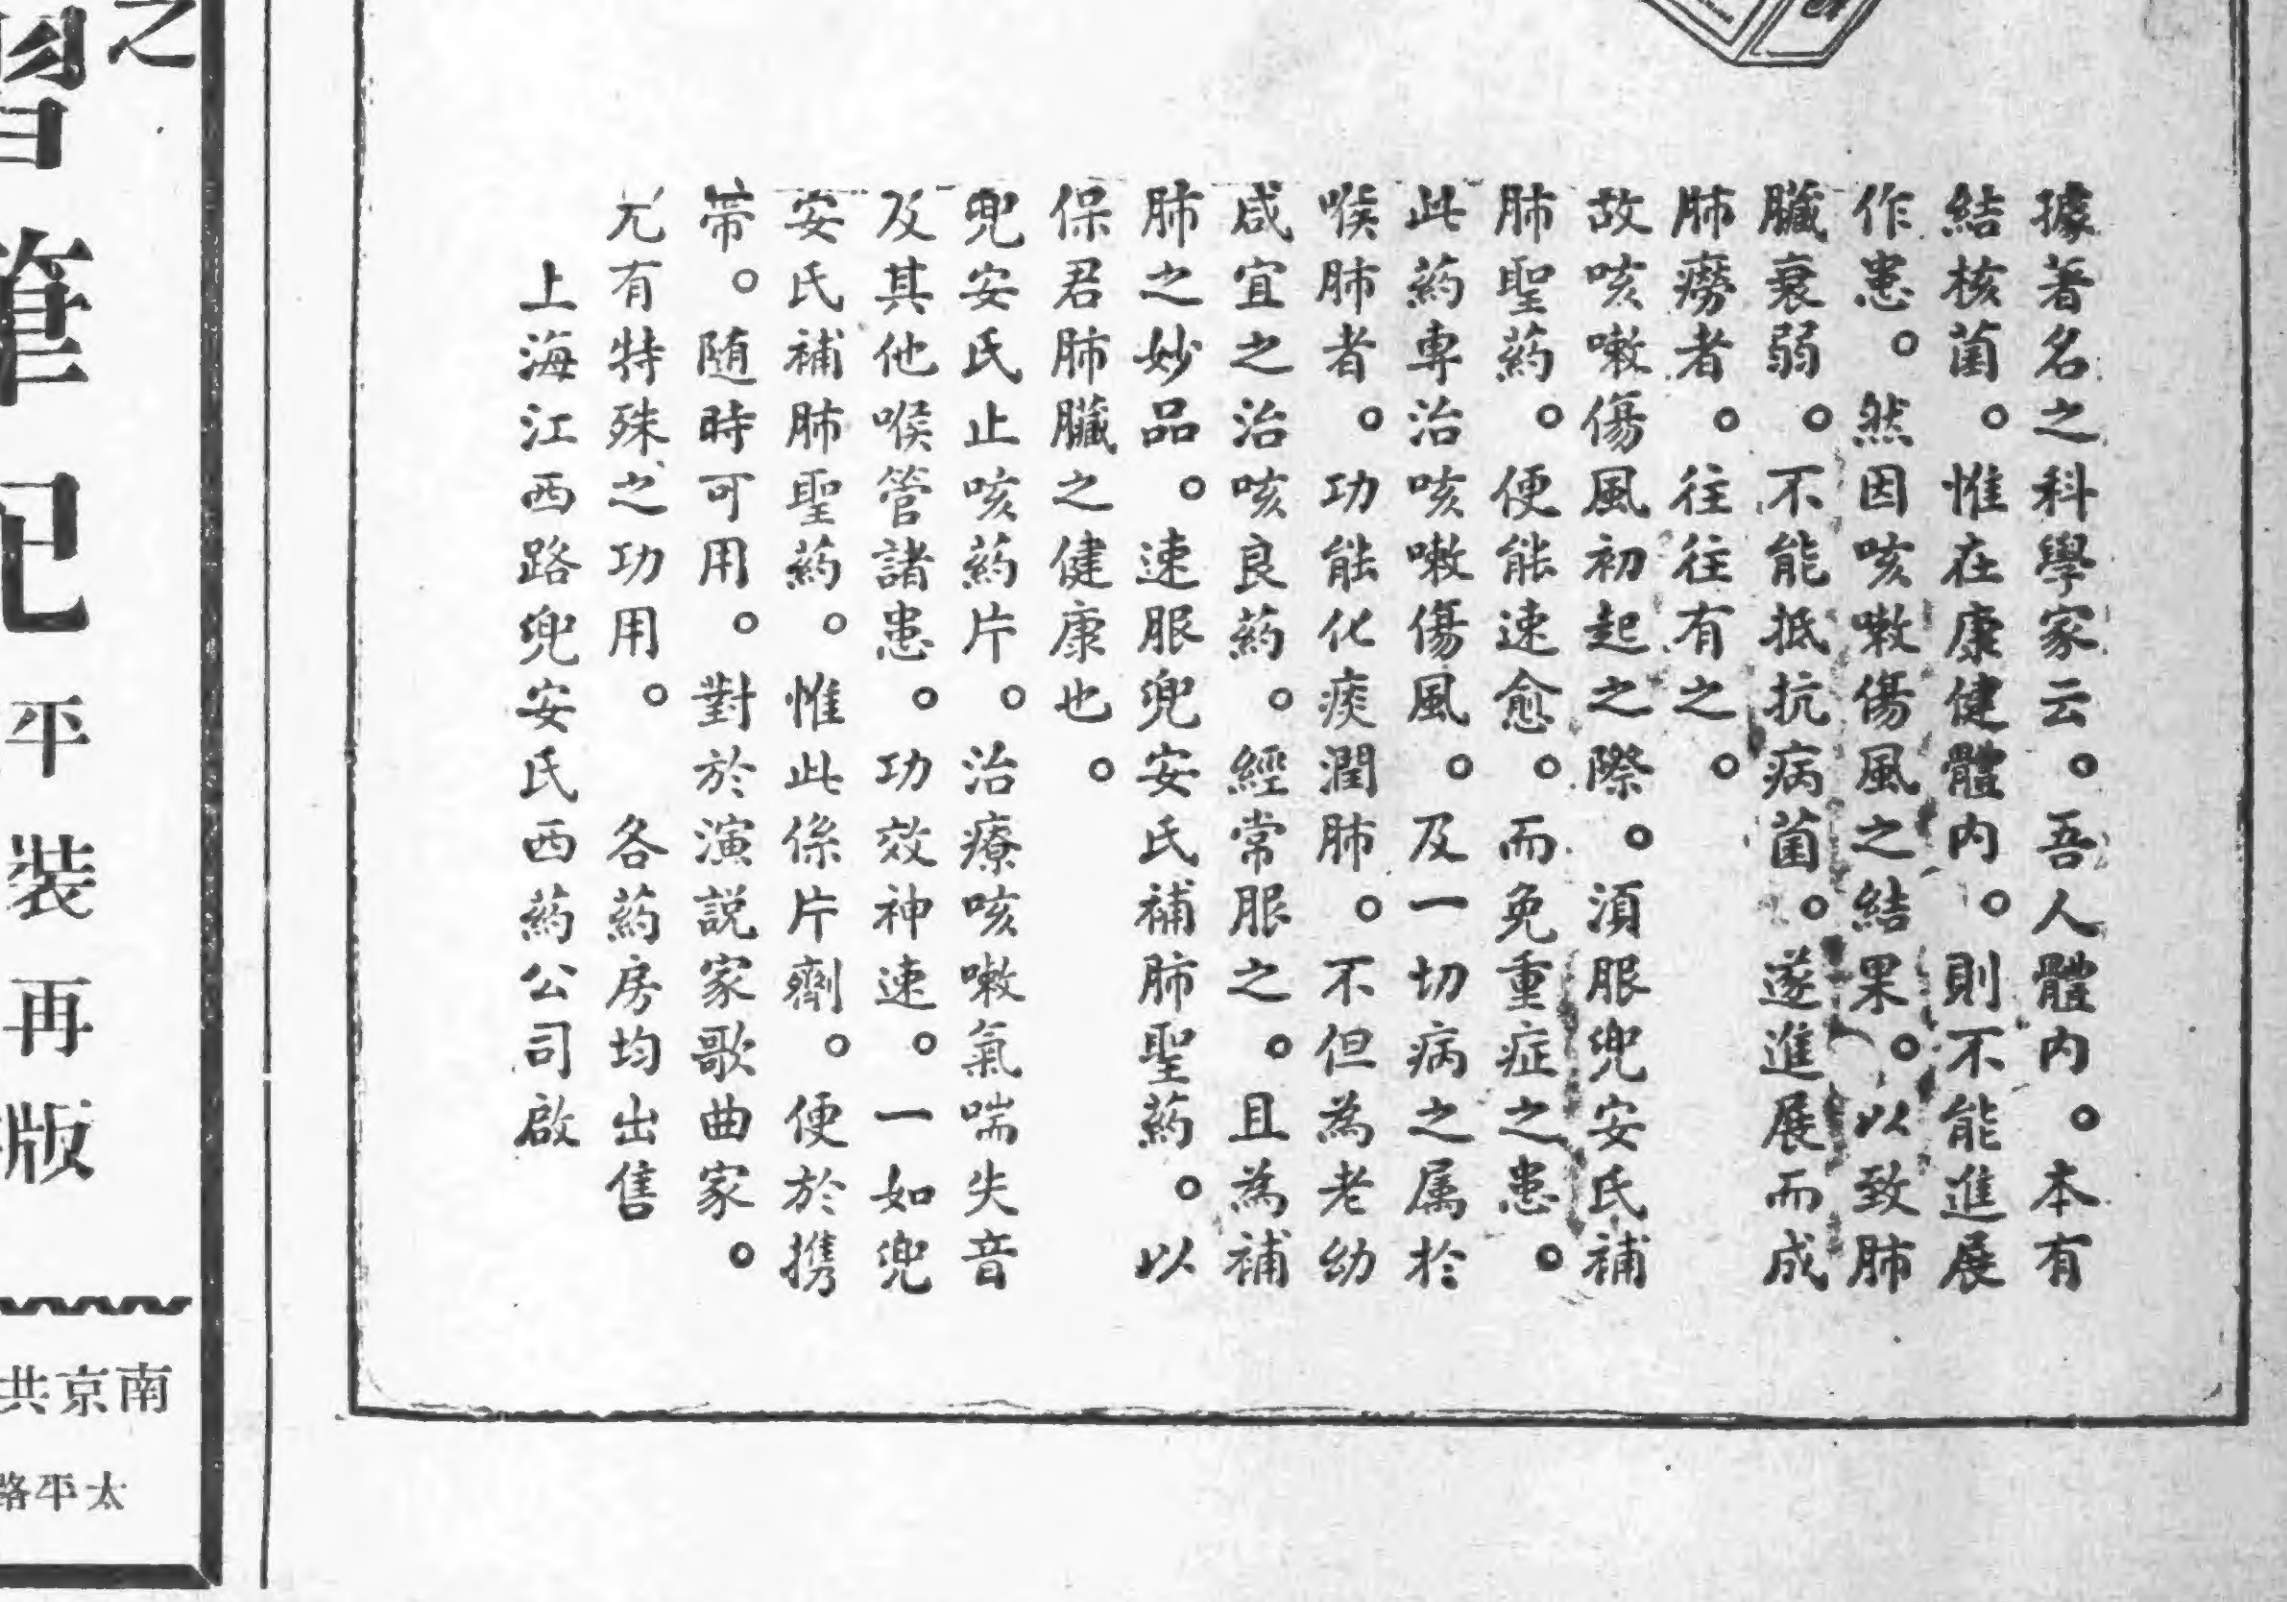 據著名之科學家云。吾人體內。本有
結核菌。惟在康健體內。則不能進展
作患。然因咳嗽傷風之結果。以致肺
臟衰弱。不能抵抗病菌。遂進展而成
肺癆者。往往有之。
故咳嗽傷風初起之際。須服兜安氏補
肺聖葯。便能速愈。而免重症之患。
此葯專治咳嗽傷風。及一切病之属於
喉肺者。功能化痰潤肺。不但為老幼
咸宜之治咳良葯。經常服之。且為補
肺之妙品。速服兜安氏補肺聖葯。以
保君肺臟之健康也。
兜安氏止咳葯片。治療咳嗽氣喘失音
及其他喉管諸患。功效神速。一如兜
安氏補肺聖葯。惟此係片劑。便於携
帶。随時可用。對於演説家歌曲家。
尤有特殊之功用。 各葯房均出售
上海江西路兜安氏西葯公司啟
之
筆記平裝再版
南京共
太平路